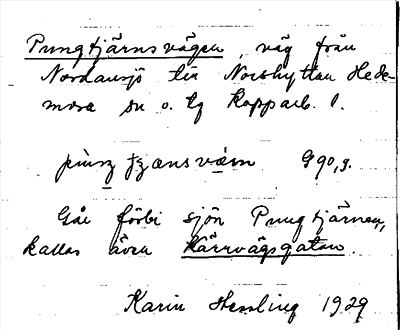 Pungtjärnsvägen, väg från
Nordansjö till Norshyttan Hede-
mora sn o. tg Kopparb. l.
G 90,3.
Går förbi sjön Pungtjärnen,
kallas även Kärrvägsgatan.
Karin Hessling 1929